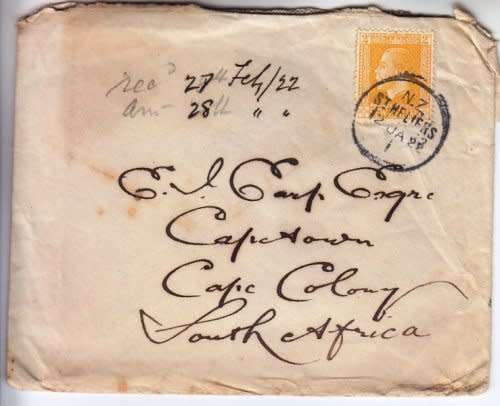 recd 27th Feb/22
ans 28th " "
N.Z.
ST HELIERS
12 JA 22
1
E. I. Earp Esqre
Capetown
Cape Colony
South Africa